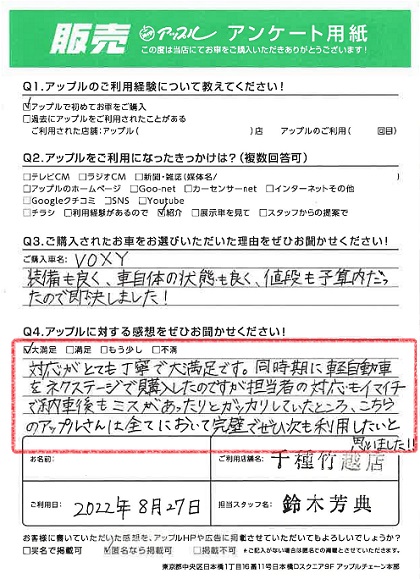 販売 アップル アンケート用紙
この度は当店にてお車をご購入いただきありがとうございます!
Q1.アップルのご利用経験について教えてください!
☑アップルで初めてお車をご購入
□過去にアップルをご利用されたことがある
ご利用された店舗:アップル( )店 アップルのご利用( 回目)
Q2.アップルをご利用になったきっかけは?(複数回答可)
□テレビCM □ラジオCM □新聞・雑誌(媒体名/ )
□アップルのホームページ □Goo-net □カーセンサーnet □インターネットその他
□Googleクチコミ □SNS □Youtube
□チラシ □利用経験があるので ☑紹介 □展示車を見て □スタッフからの提案で
Q3.ご購入されたお車をお選びいただいた理由をぜひお聞かせください!
ご購入車名: VOXY
装備も良く、車自体の状態も良く、値段も予算内だっ
たので即決しました!
Q4.アップルに対する感想をぜひお聞かせください!
☑大満足 □満足 □もう少し □不満
対応がとても丁寧で大満足です。同時期に軽自動車
をネクステージで購入したのですが担当者の対応もイマイチ
で納車後もミスがあったりとガッカリしていたところ、こちら
のアップルさんは全てにおいて完璧でぜひ次も利用したいと
思いました!!
お名前: ご利用店舗名: 千種竹越店
ご利用日: 2022年8月27日 担当スタッフ名: 鈴木芳典
お客様に書いていただいた感想を、アップルHPや広告に掲載させていただいてもよろしいでしょうか?
□実名で掲載可 ☑匿名なら掲載可 □掲載不可 *ご記入がない場合は匿名での掲載とさせていただきます。
東京都中央区日本橋1丁目16番11号日本橋Dスクエア9F アップルチェーン本部